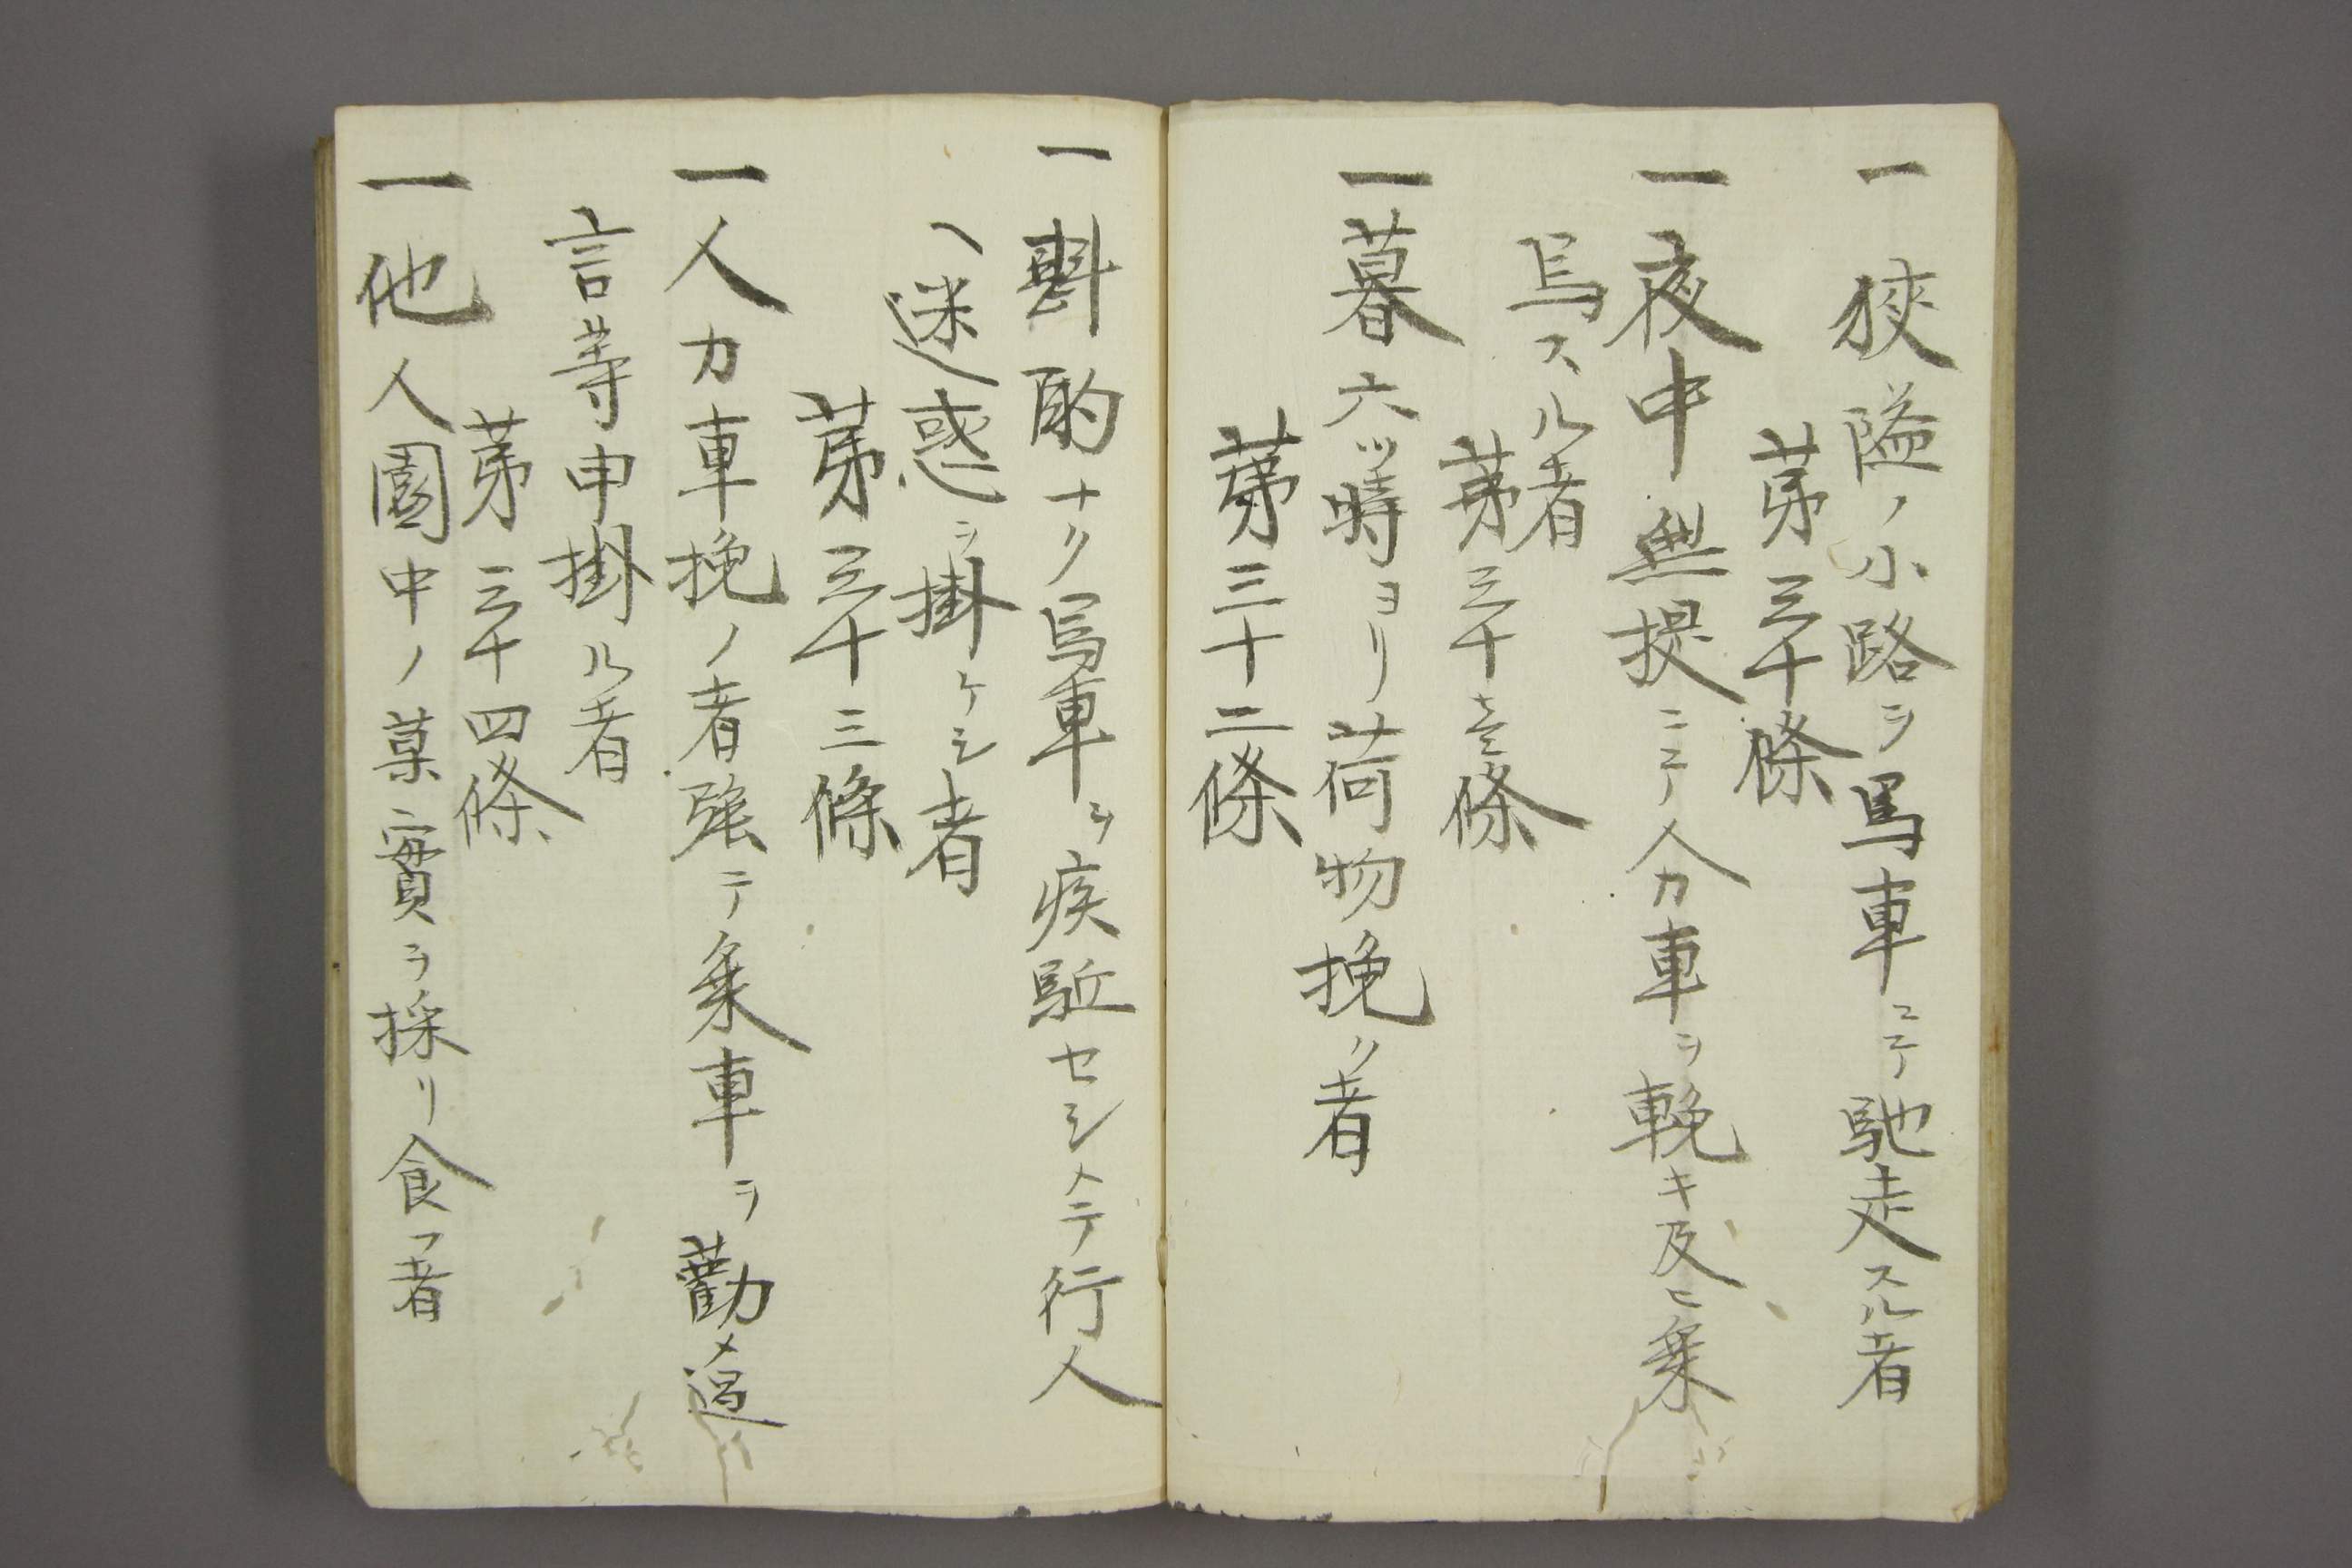 一狹隘ノ小路ヲ馬車ニテ馳走スル者
第三十條
一夜中無提ニテ人力車ヲ輓キ及ヒ乗
馬スル者
第三十壱條
一暮六ッ時ヨリ荷物挽ク者
第三十二條
一斟酌ナク馬車ヲ疾駈セシメテ行人
ヘ迷惑ヲ掛ケシ者
第三十三條
一人力車挽ノ者強テ乗車ヲ勸メ過
言等申掛ル者
第三十四條
一他人園中ノ菓實ヲ採リ食フ者